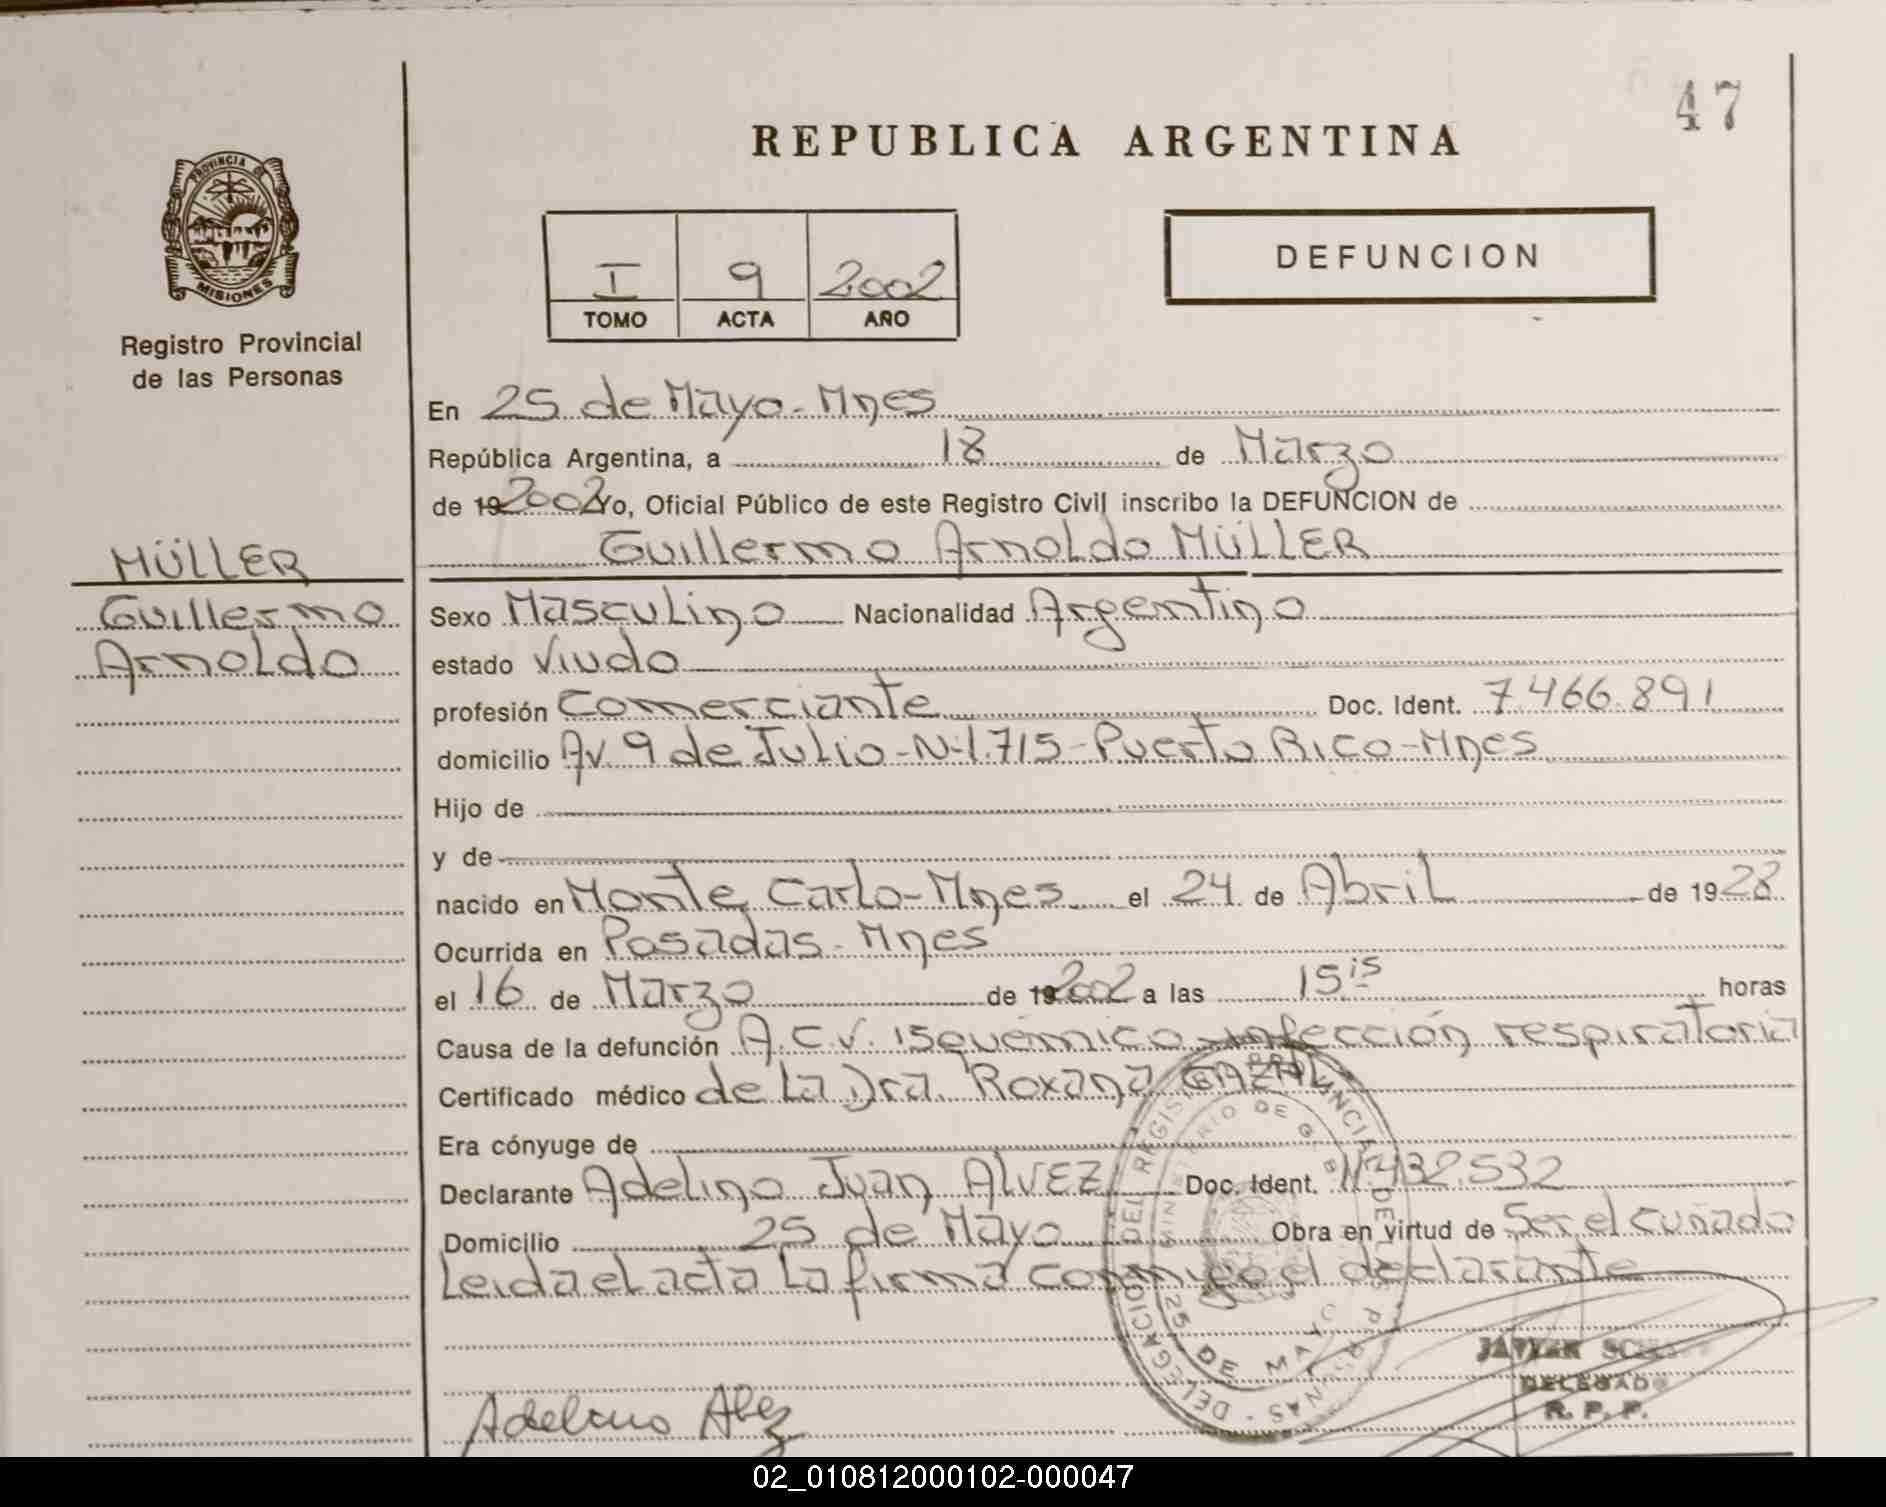 47
REPUBLICA ARGENTINA
PROVINCIA DE
MISIONES
Registro Provincial
de las Personas
I 9 2002
TOMO ACTA AÑO
DEFUNCION
En 25 de Mayo - Mnes
República Argentina, a 18 de Marzo
de 19 2002 Yo, Oficial Público de este Registro Civil inscribo la DEFUNCION de
Guillermo Arnoldo MÜLLER
MÜLLER
Guillermo
Arnoldo
Sexo Masculino Nacionalidad Argentino
estado Viudo
profesión Comerciante Doc. Ident. 7.466.891
domicilio Av. 9 de Julio - Nº 1.715 - Puerto Rico - Mnes
Hijo de
y de
nacido en Monte Carlo - Mnes el 24 de Abril de 1928
Ocurrida en Posadas - Mnes
el 16 de Marzo de 19 2002 a las 15 15 horas
Causa de la defunción A.C.V. isquémico - infección respiratoria
Certificado médico de la Dra. Roxana GAZAL
Era cónyuge de
Declarante Adelino Juan ALVEZ Doc. Ident. 11.432.532
Domicilio 25 de Mayo Obra en virtud de Ser el cuñado
Leida el acta la firma conmigo el declarante
25 DE MAYO
JAVIER
DELEGADO
R. P. P.
Adelino Alvez
02_010812000102-000047